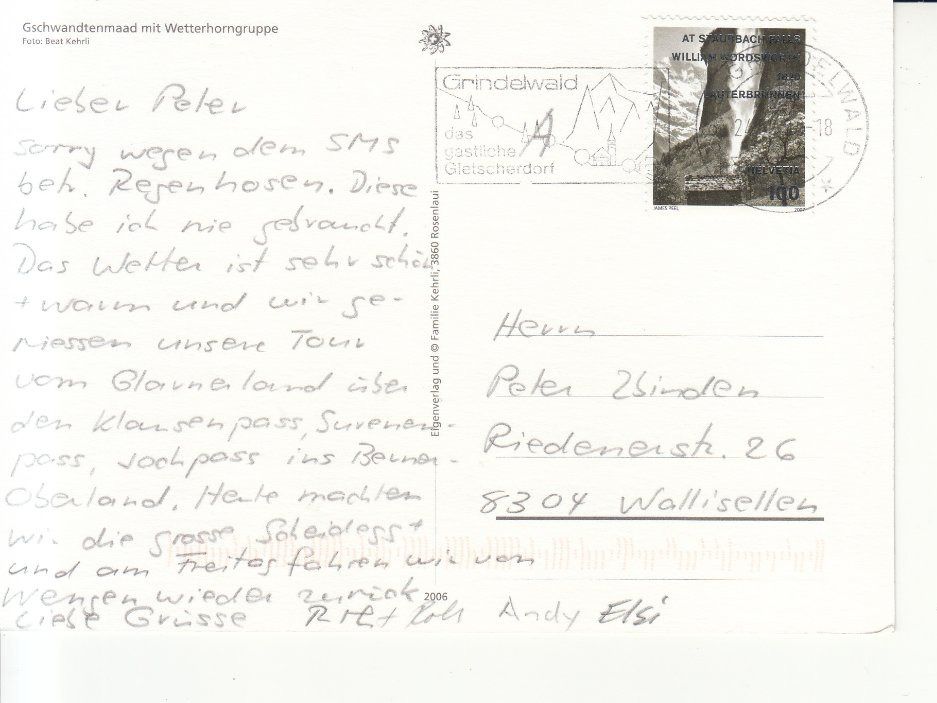 Gschwandtenmaad mit Wetterhorngruppe
Foto: Beat Kehrli
Lieber Peter
sorry wegen dem SMS
betr. Regenhosen. Diese
habe ich nie gebraucht.
Das Wetter ist sehr schön
+ warm und wir ge-
niessen unsere Tour
vom Glarnerland über
den Klausenpass, Surenen-
pass, Jochpass ins Berner-
Oberland. Heute machten
wir die grosse Scheidegg +
und am Freitag fahren wir von
Wengen wieder zurück
Liebe Grüsse
Andy Elsi
2006
Eigenverlag und © Familie Kehrli, 3860 Rosenlaui
Grindelwald
das
gastliche
Gletscherdorf
AT STAUBBACH FALLS
WILLIAM WORDSWORTH
LAUTERBRUNNEN
HELVETIA
100
JAMES PEEL
2007
GRINDELWALD
-18
Herrn
Peter Zbinden
Riedenerstr. 26
8304 Wallisellen